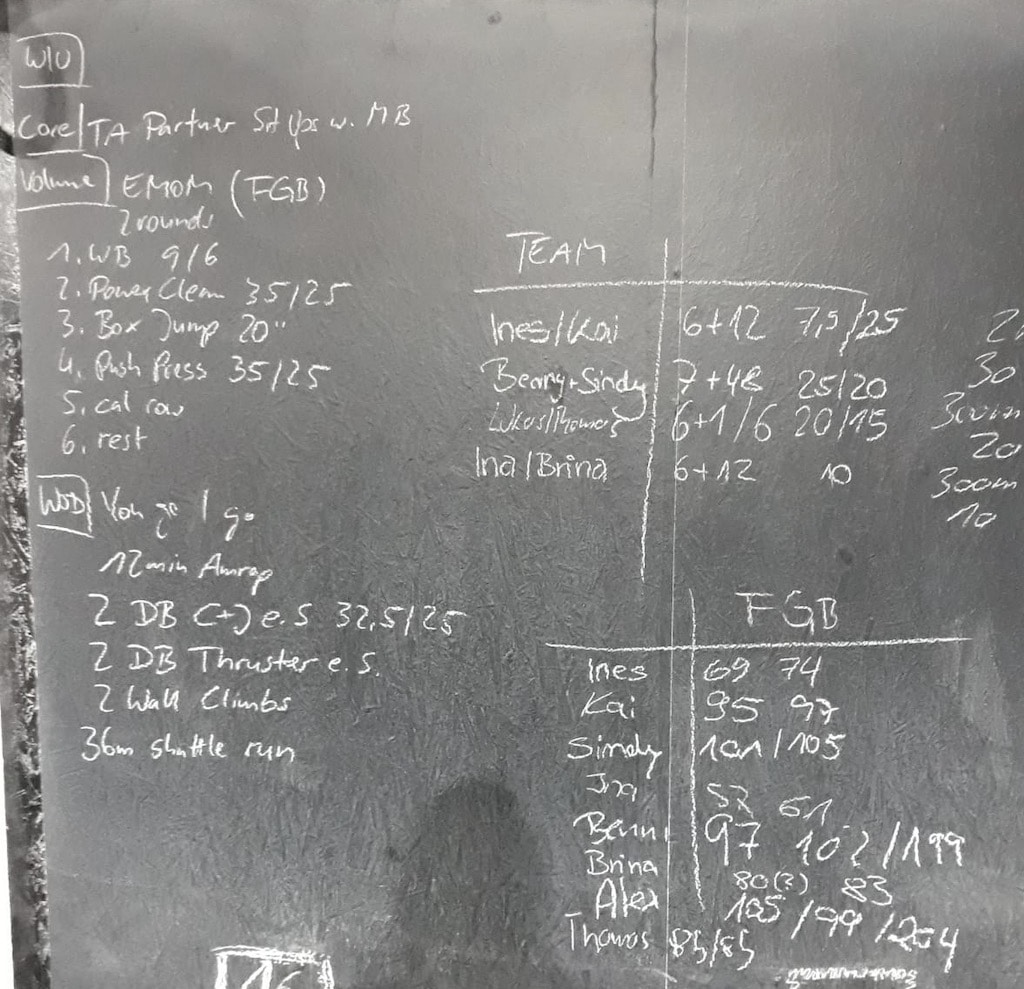 W/U
Core TA Partner Sit Ups w. MB
Volume EMOM (FGB)
2 rounds
1. WB 9/6
2. Power Clean 35/25
3. Box Jump 20"
4. Push Press 35/25
5. cal row
6. rest
WOD You go I go
12min Amrap
2 DB C+J e.S 32,5/25
2 DB Thruster e.S.
2 Wall Climbs
36m shuttle run
TEAM
Ines/Kai 6+12 7,5/25
Benny+Sindy 7+48 25/20
Lukas/Thomas 6+1/6 20/15
Ina/Brina 6+12 10
30
300m
20
300m
10
FGB
Ines 69 74
Kai 95 97
Sindy 101/105
Ina 57 61
Benni 97 102/199
Brina 80(?) 83
Alex 105/99/204
Thomas 85/85
16